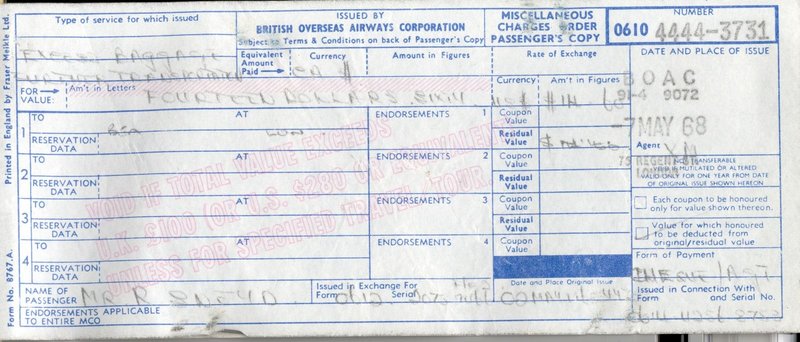 Type of service for which issued
ISSUED BY
BRITISH OVERSEAS AIRWAYS CORPORATION
Subject to Terms & Conditions on back of Passenger's Copy
MISCELLANEOUS
CHARGES ORDER
PASSENGER'S COPY
NUMBER
0610 4444-3731
Equivalent
Amount
Paid
Currency
Amount in Figures
Rate of Exchange
DATE AND PLACE OF ISSUE
FOR
VALUE:
Am't in Letters
FOURTEEN DOLLARS
Currency
Am't in Figures
BOAC
91-4 9072
-7 MAY 68
Agent
75 REGENT ST
NOT TRANSFERABLE
VOID IF MUTILATED OR ALTERED
VALID ONLY FOR ONE YEAR FROM DATE
OF ORIGINAL ISSUE SHOWN HEREON
1 TO
AT
ENDORSEMENTS 1
Coupon
Value
BEA
LON
RESERVATION
DATA
Residual
Value
2 TO
AT
ENDORSEMENTS 2
Coupon
Value
RESERVATION
DATA
Residual
Value
3 TO
AT
ENDORSEMENTS 3
Coupon
Value
RESERVATION
DATA
Residual
Value
4 TO
AT
ENDORSEMENTS 4
Coupon
Value
RESERVATION
DATA
VOID IF TOTAL VALUE EXCEEDS
U.K. £100 (OR U.S. $280 OR EQUIVALENT)
UNLESS FOR SPECIFIED TRAVEL TRANSPORTATION
Each coupon to be honoured
only for value shown thereon.
Value for which honoured
to be deducted from
original/residual value
Form of Payment
Date and Place Original Issue
NAME OF
PASSENGER
MR R SNEYD
Issued in Exchange For
Form
Serial
Issued in Connection With
Form and Serial No.
ENDORSEMENTS APPLICABLE
TO ENTIRE MCO
Form No. 8767.A.
Printed in England by Fraser Meikle Ltd.